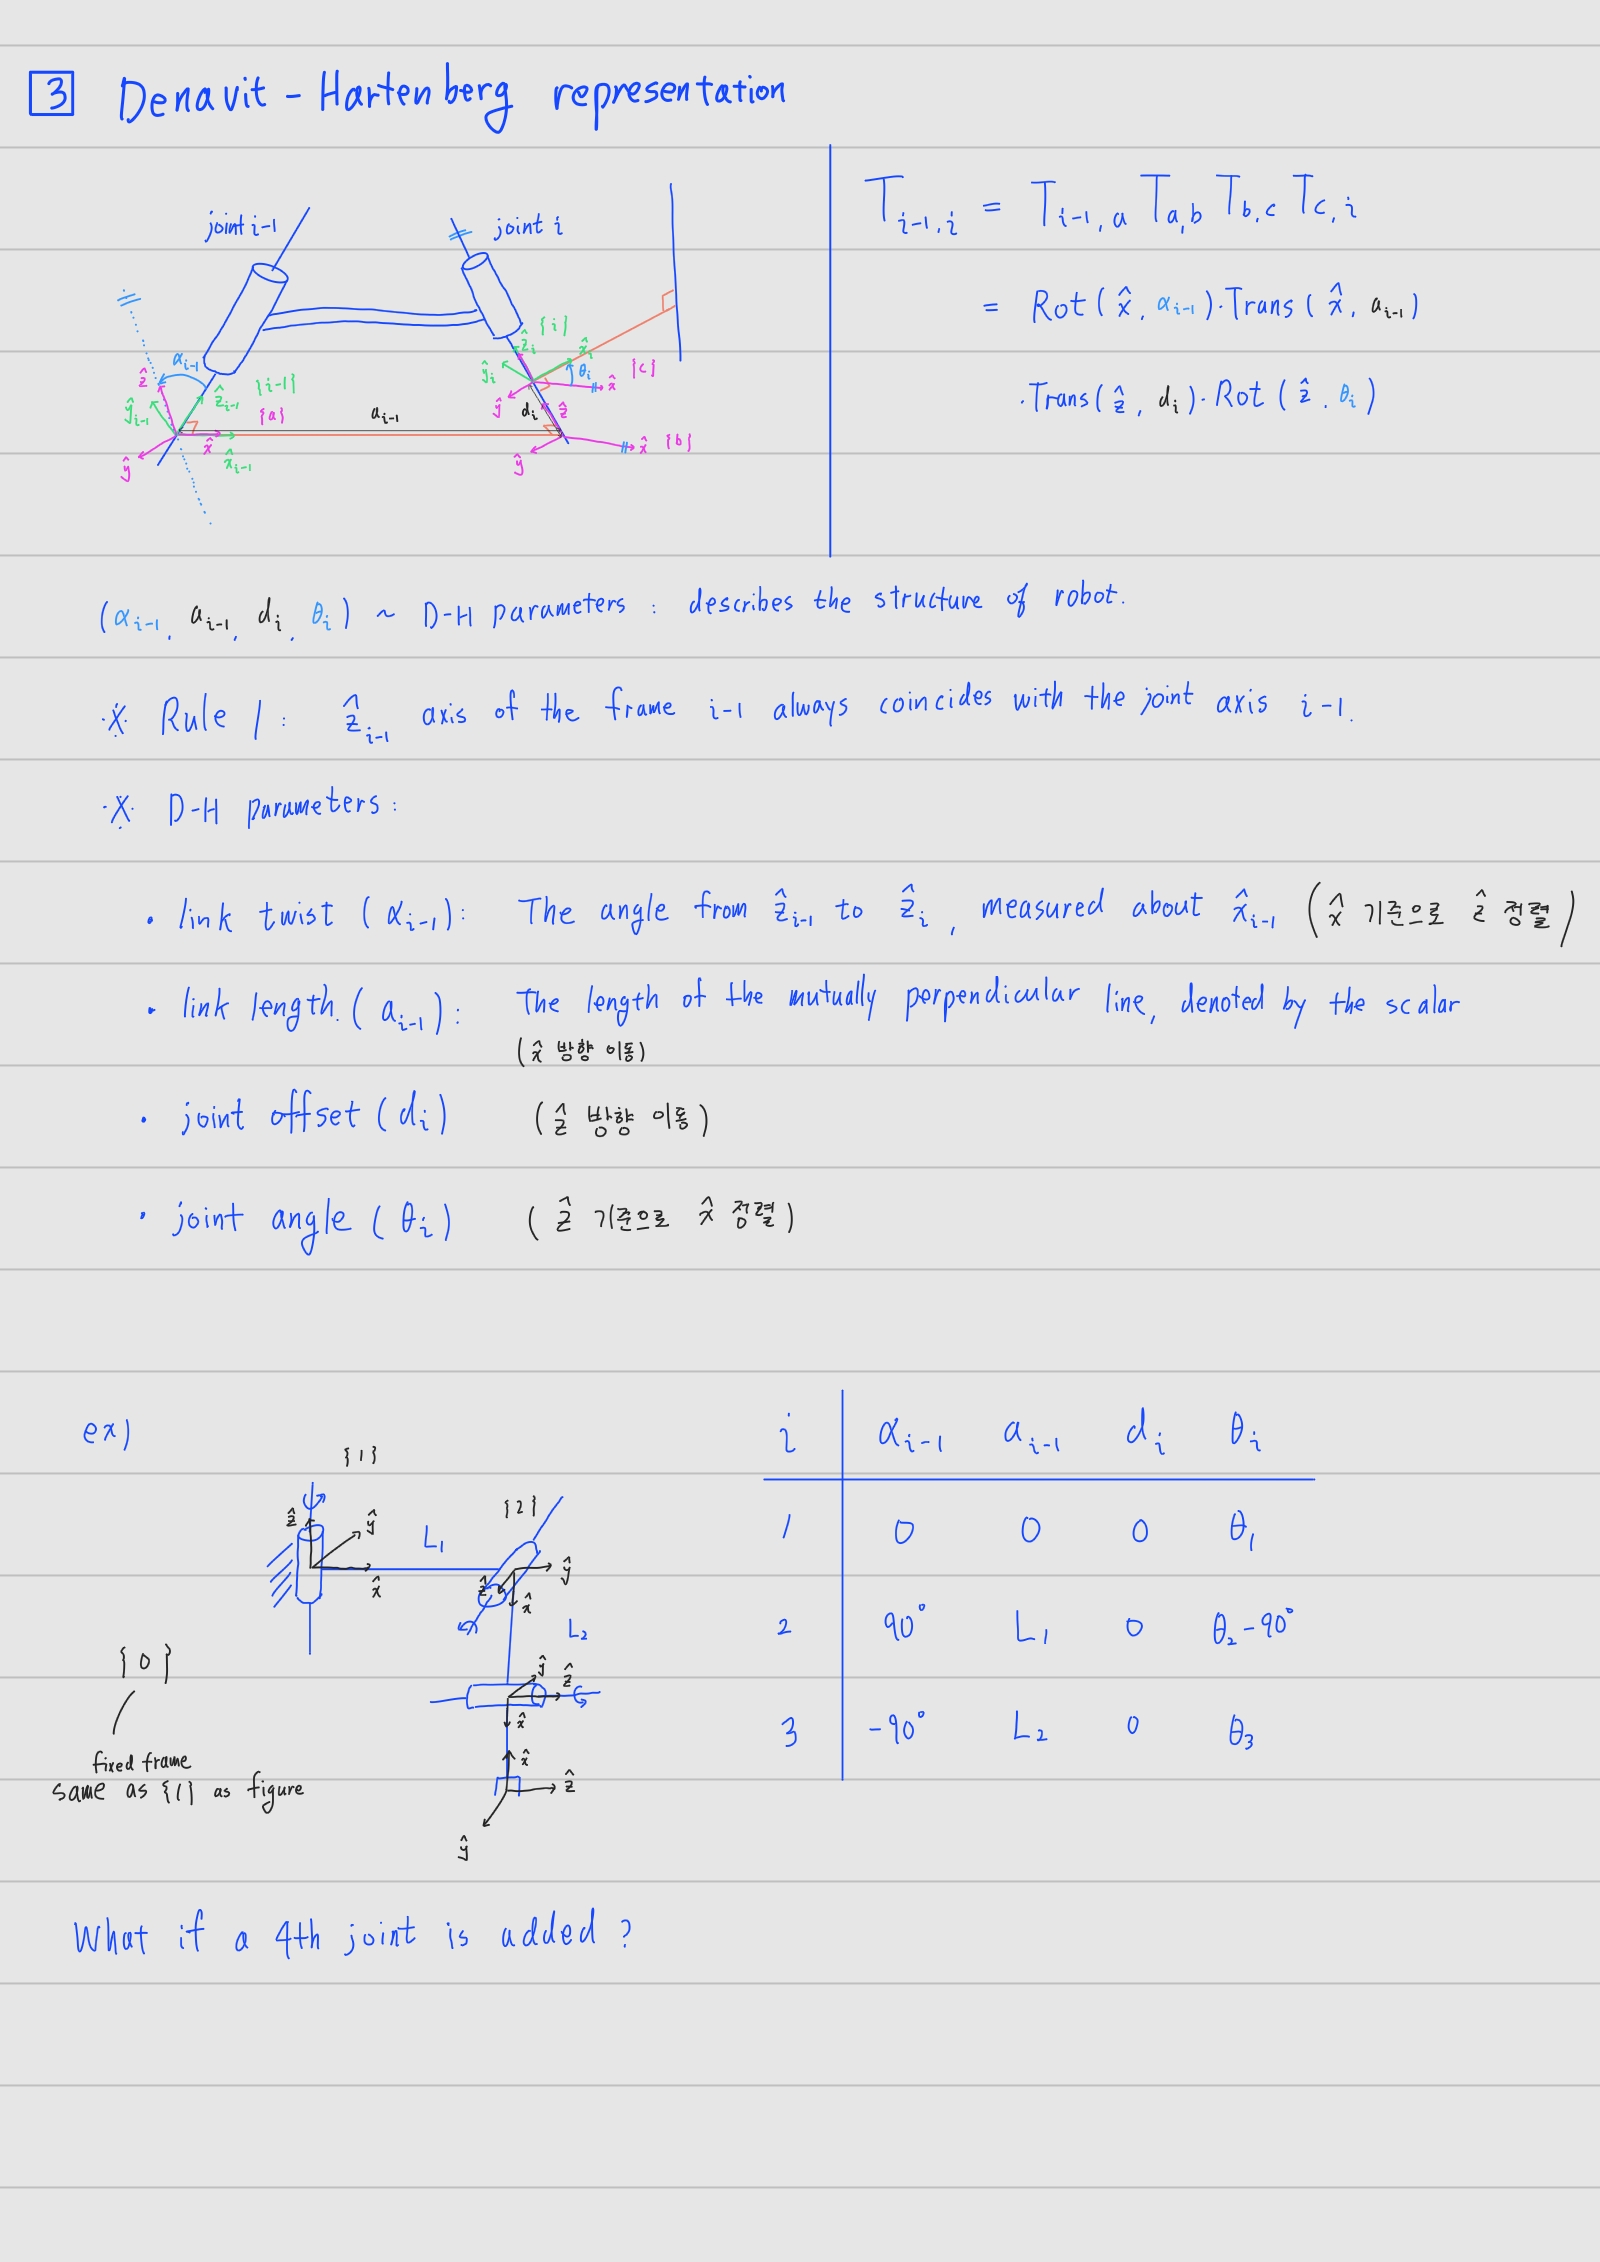 3 Denavit - Hartenberg representation
joint i-1
joint i
α_{i-1}
ẑ
ŷ_{i-1}
ẑ_{i-1}
{i-1}
{a}
x̂
x̂_{i-1}
ŷ
a_{i-1}
{i}
ẑ_i
x̂_i
ŷ_i
θ_i
{c}
x̂
ŷ
d_i
ẑ
x̂ {b}
ŷ
T_{i-1,i} = T_{i-1,a} T_{a,b} T_{b,c} T_{c,i}
= Rot(x̂, α_{i-1})·Trans(x̂, a_{i-1})
·Trans(ẑ, d_i)·Rot(ẑ, θ_i)
(α_{i-1}, a_{i-1}, d_i, θ_i) ~ D-H parameters : describes the structure of robot.
※ Rule 1 : ẑ_{i-1} axis of the frame i-1 always coincides with the joint axis i-1.
※ D-H parameters :
· link twist (α_{i-1}) : The angle from ẑ_{i-1} to ẑ_i, measured about x̂_{i-1} (x̂ 기준으로 ẑ 정렬)
· link length. (a_{i-1}) : The length of the mutually perpendicular line, denoted by the scalar
(x̂ 방향 이동)
· joint offset (d_i) (ẑ 방향 이동)
· joint angle (θ_i) (ẑ 기준으로 x̂ 정렬)
ex)
{1}
ẑ
ŷ
x̂
L_1
{2}
ŷ
ẑ
x̂
L_2
ŷ
ẑ
x̂
x̂
ẑ
ŷ
{0}
fixed frame
same as {1} as figure
i α_{i-1} a_{i-1} d_i θ_i
1 0 0 0 θ_1
2 90° L_1 0 θ_2-90°
3 -90° L_2 0 θ_3
What if a 4th joint is added ?